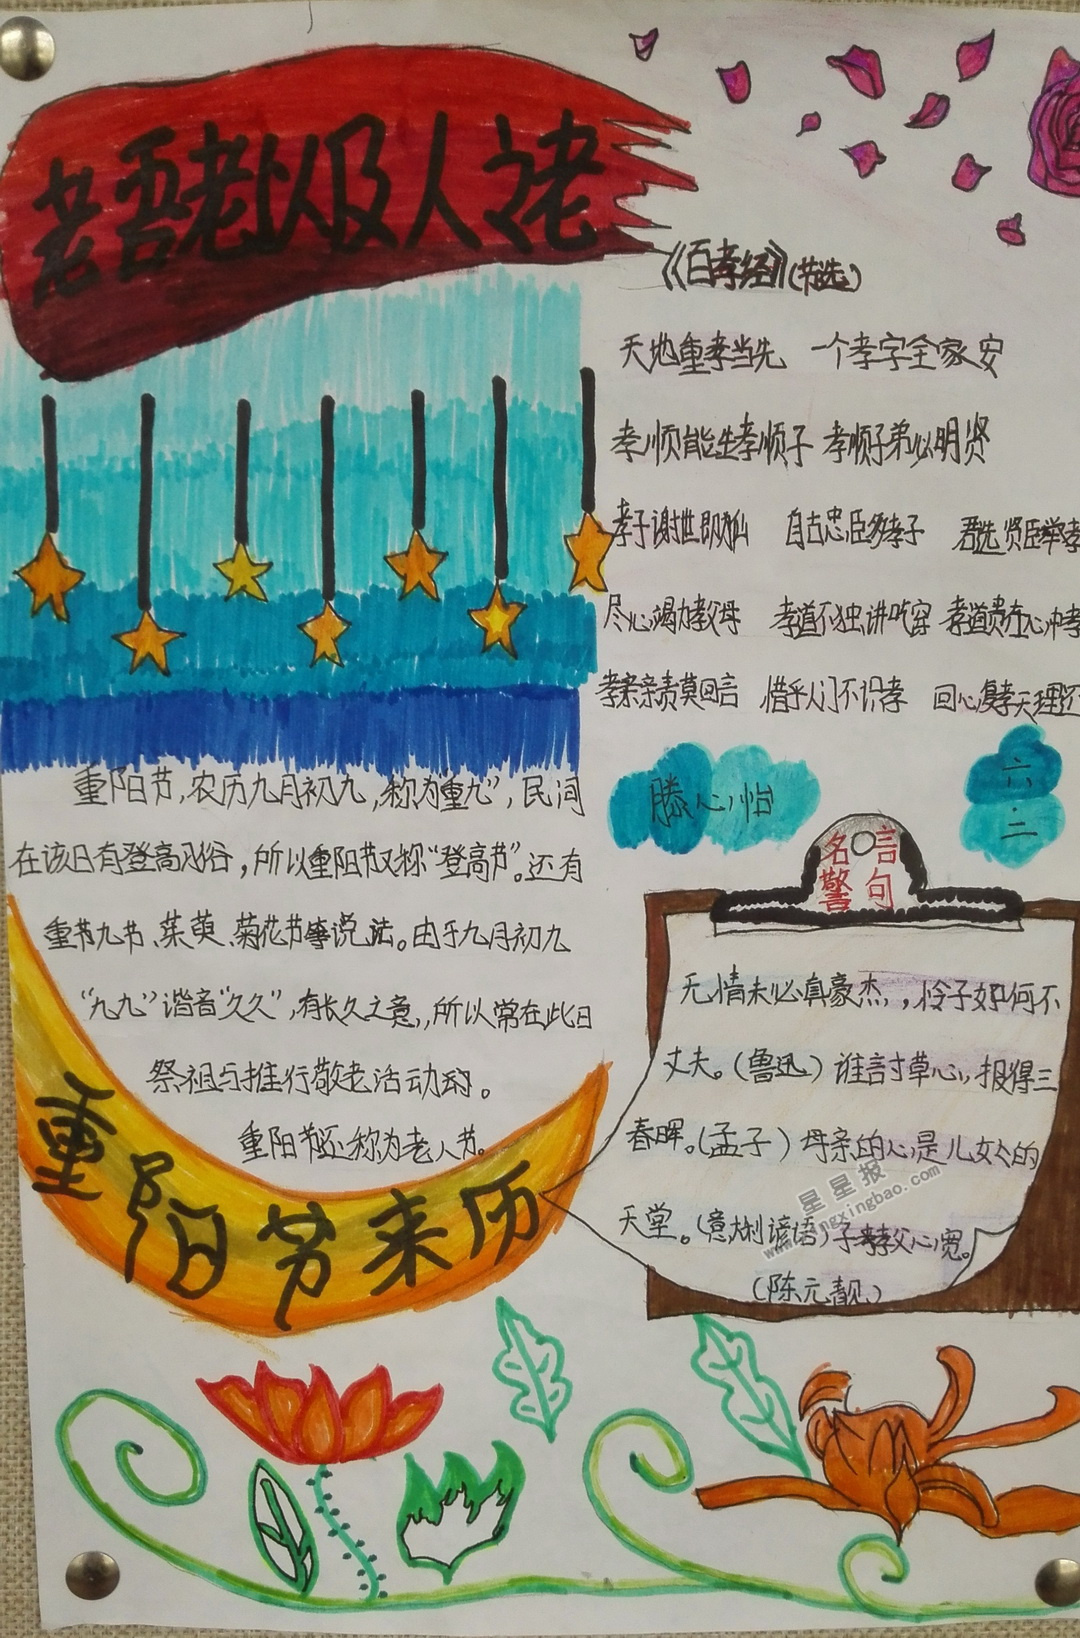 老吾老以及人之老
《百孝经》(节选)
天地重孝当先 一个孝字全家安
孝顺能生孝顺子 孝顺子弟必明贤
孝子谢世即为仙 自古忠臣多孝子 君选贤臣举孝
尽心竭力孝父母 孝道不独讲吃穿 孝道贵在心中孝
孝亲亲责莫回言 惜乎人们不识孝 回心复孝天理还
重阳节,农历九月初九,称为“重九”,民间
在该日有登高习俗,所以重阳节又称“登高节”。还有
重节九节、茱萸、菊花节等说法。由于九月初九
“九九”谐音“久久”,有长久之意,,所以常在此日
祭祖与推行敬老活动动。
重阳节还称为老人节。
重阳节来历
滕心怡
六·二
名言
警句
无情未必真豪杰,,怜子如何不
丈夫。(鲁迅)谁言讨草心,报得三
春晖。(孟子)母亲的心是儿女的
天堂。(意大利谚语)子孝父心宽。
(陈元靓)
星星报
www.xingxingbao.com